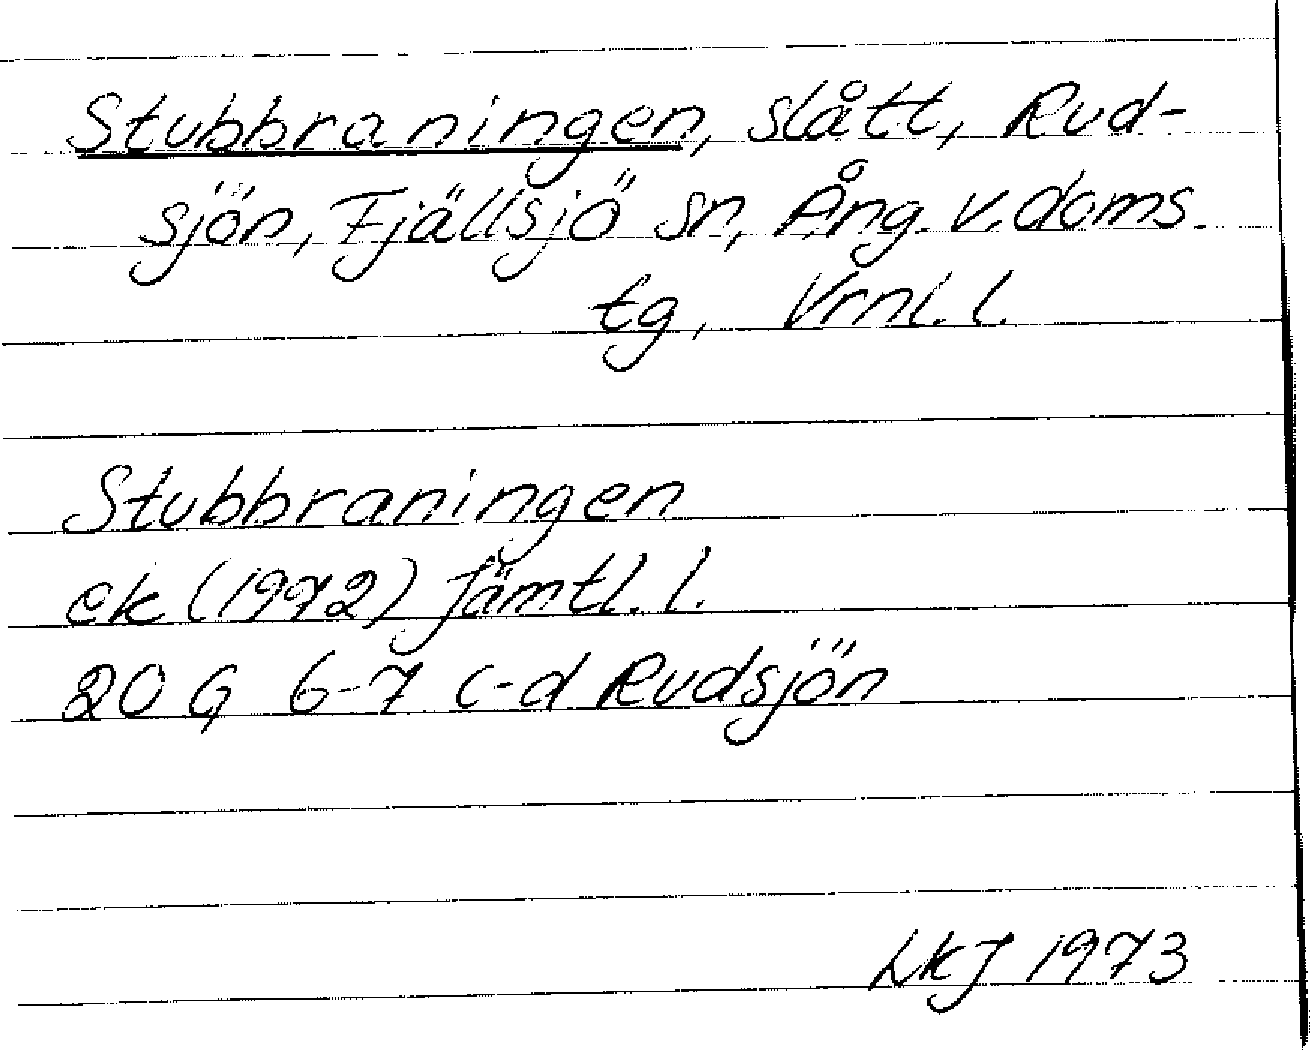 Stubbraningen, slått, Rud-
sjön, Fjällsjö sn, Ång. v. doms.
tg, Vrnl. l.
Stubbraningen
ek (1972) Jämtl. l.
20 G 6-7 c-d Rudsjön
LKJ 1973